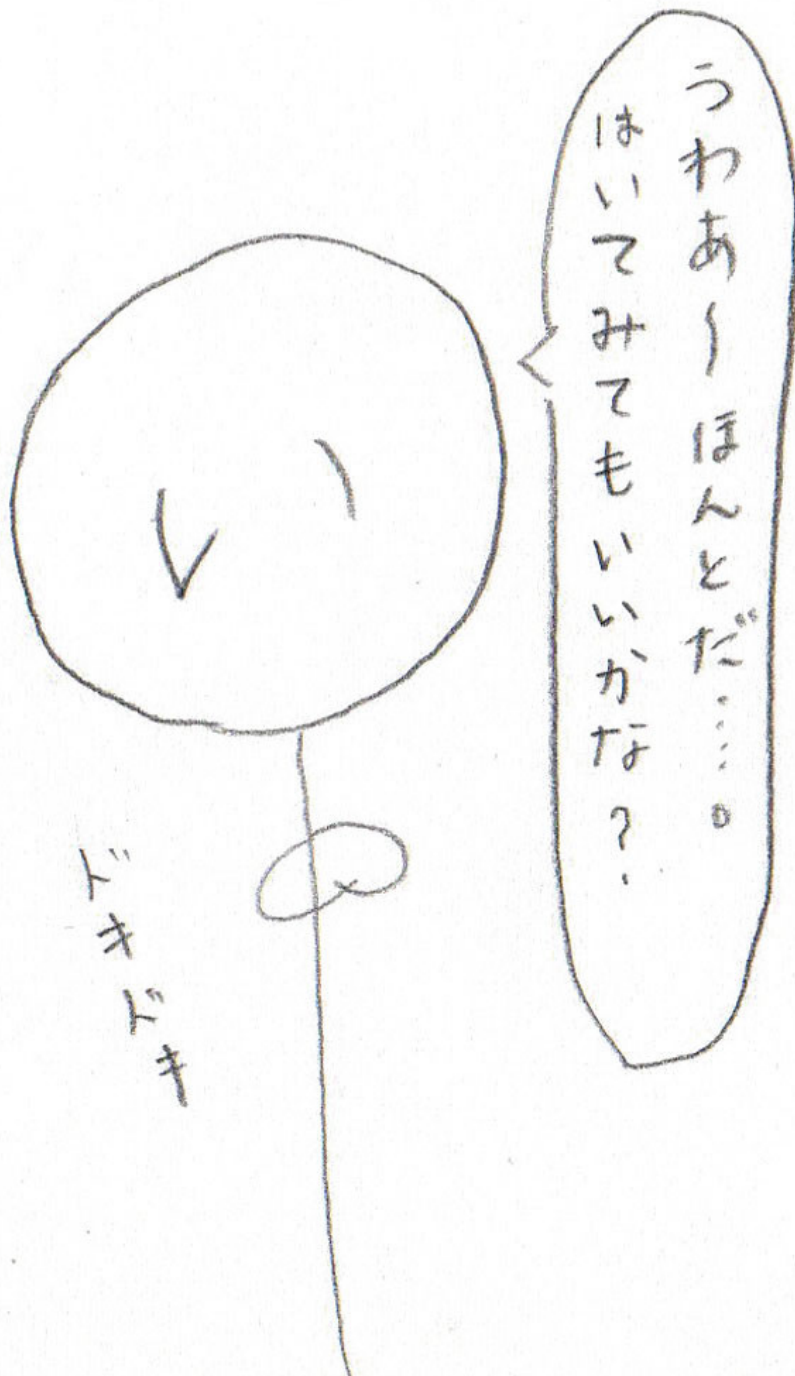 うわあ～ほんとだ……。
はいてみてもいいかな？
ドキドキ